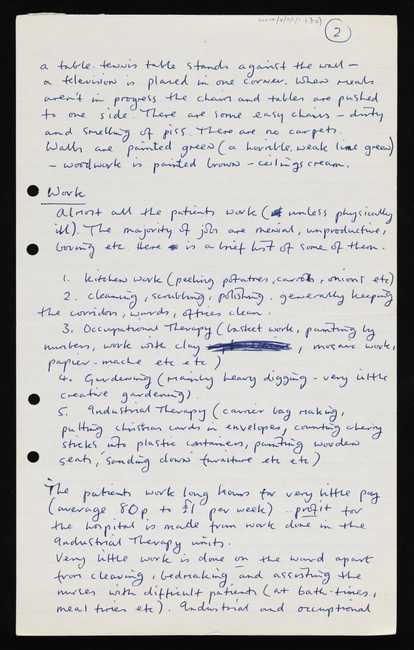 2
a table-tennis table stands against the wall –
a television is placed in one corner. When meals
aren't in progress the chairs and tables are pushed
to one side. There are some easy chairs – dirty
and smelling of piss. There are no carpets.
Walls are painted green (a horrible weak lime green)
– woodwork is painted brown – ceilings cream.
Work
Almost all the patients work (unless physically
ill). The majority of jobs are menial, unproductive,
boring etc Here is a brief list of some of them.
1. Kitchen work (peeling potatoes, carrots, onions etc)
2. cleaning, scrubbing, polishing. generally keeping
the corridors, wards, offices clean.
3. Occupational Therapy (basket work, painting by
numbers, work with clay, mosaic work,
papier-mache etc etc)
4. Gardening (mainly heavy digging – very little
creative gardening)
5. Industrial Therapy (carrier bag making,
putting christmas cards in envelopes, counting cherry
sticks into plastic containers, painting wooden
seats, sanding down furniture etc etc)
The patients work long hours for very little pay
(average 80p to £1 per week) – profit for
the hospital is made from work done in the
Industrial Therapy units.
Very little work is done on the ward apart
from cleaning, bedmaking and assisting the
nurses with difficult patients (at bath-times,
meal times etc). Industrial and occuptional